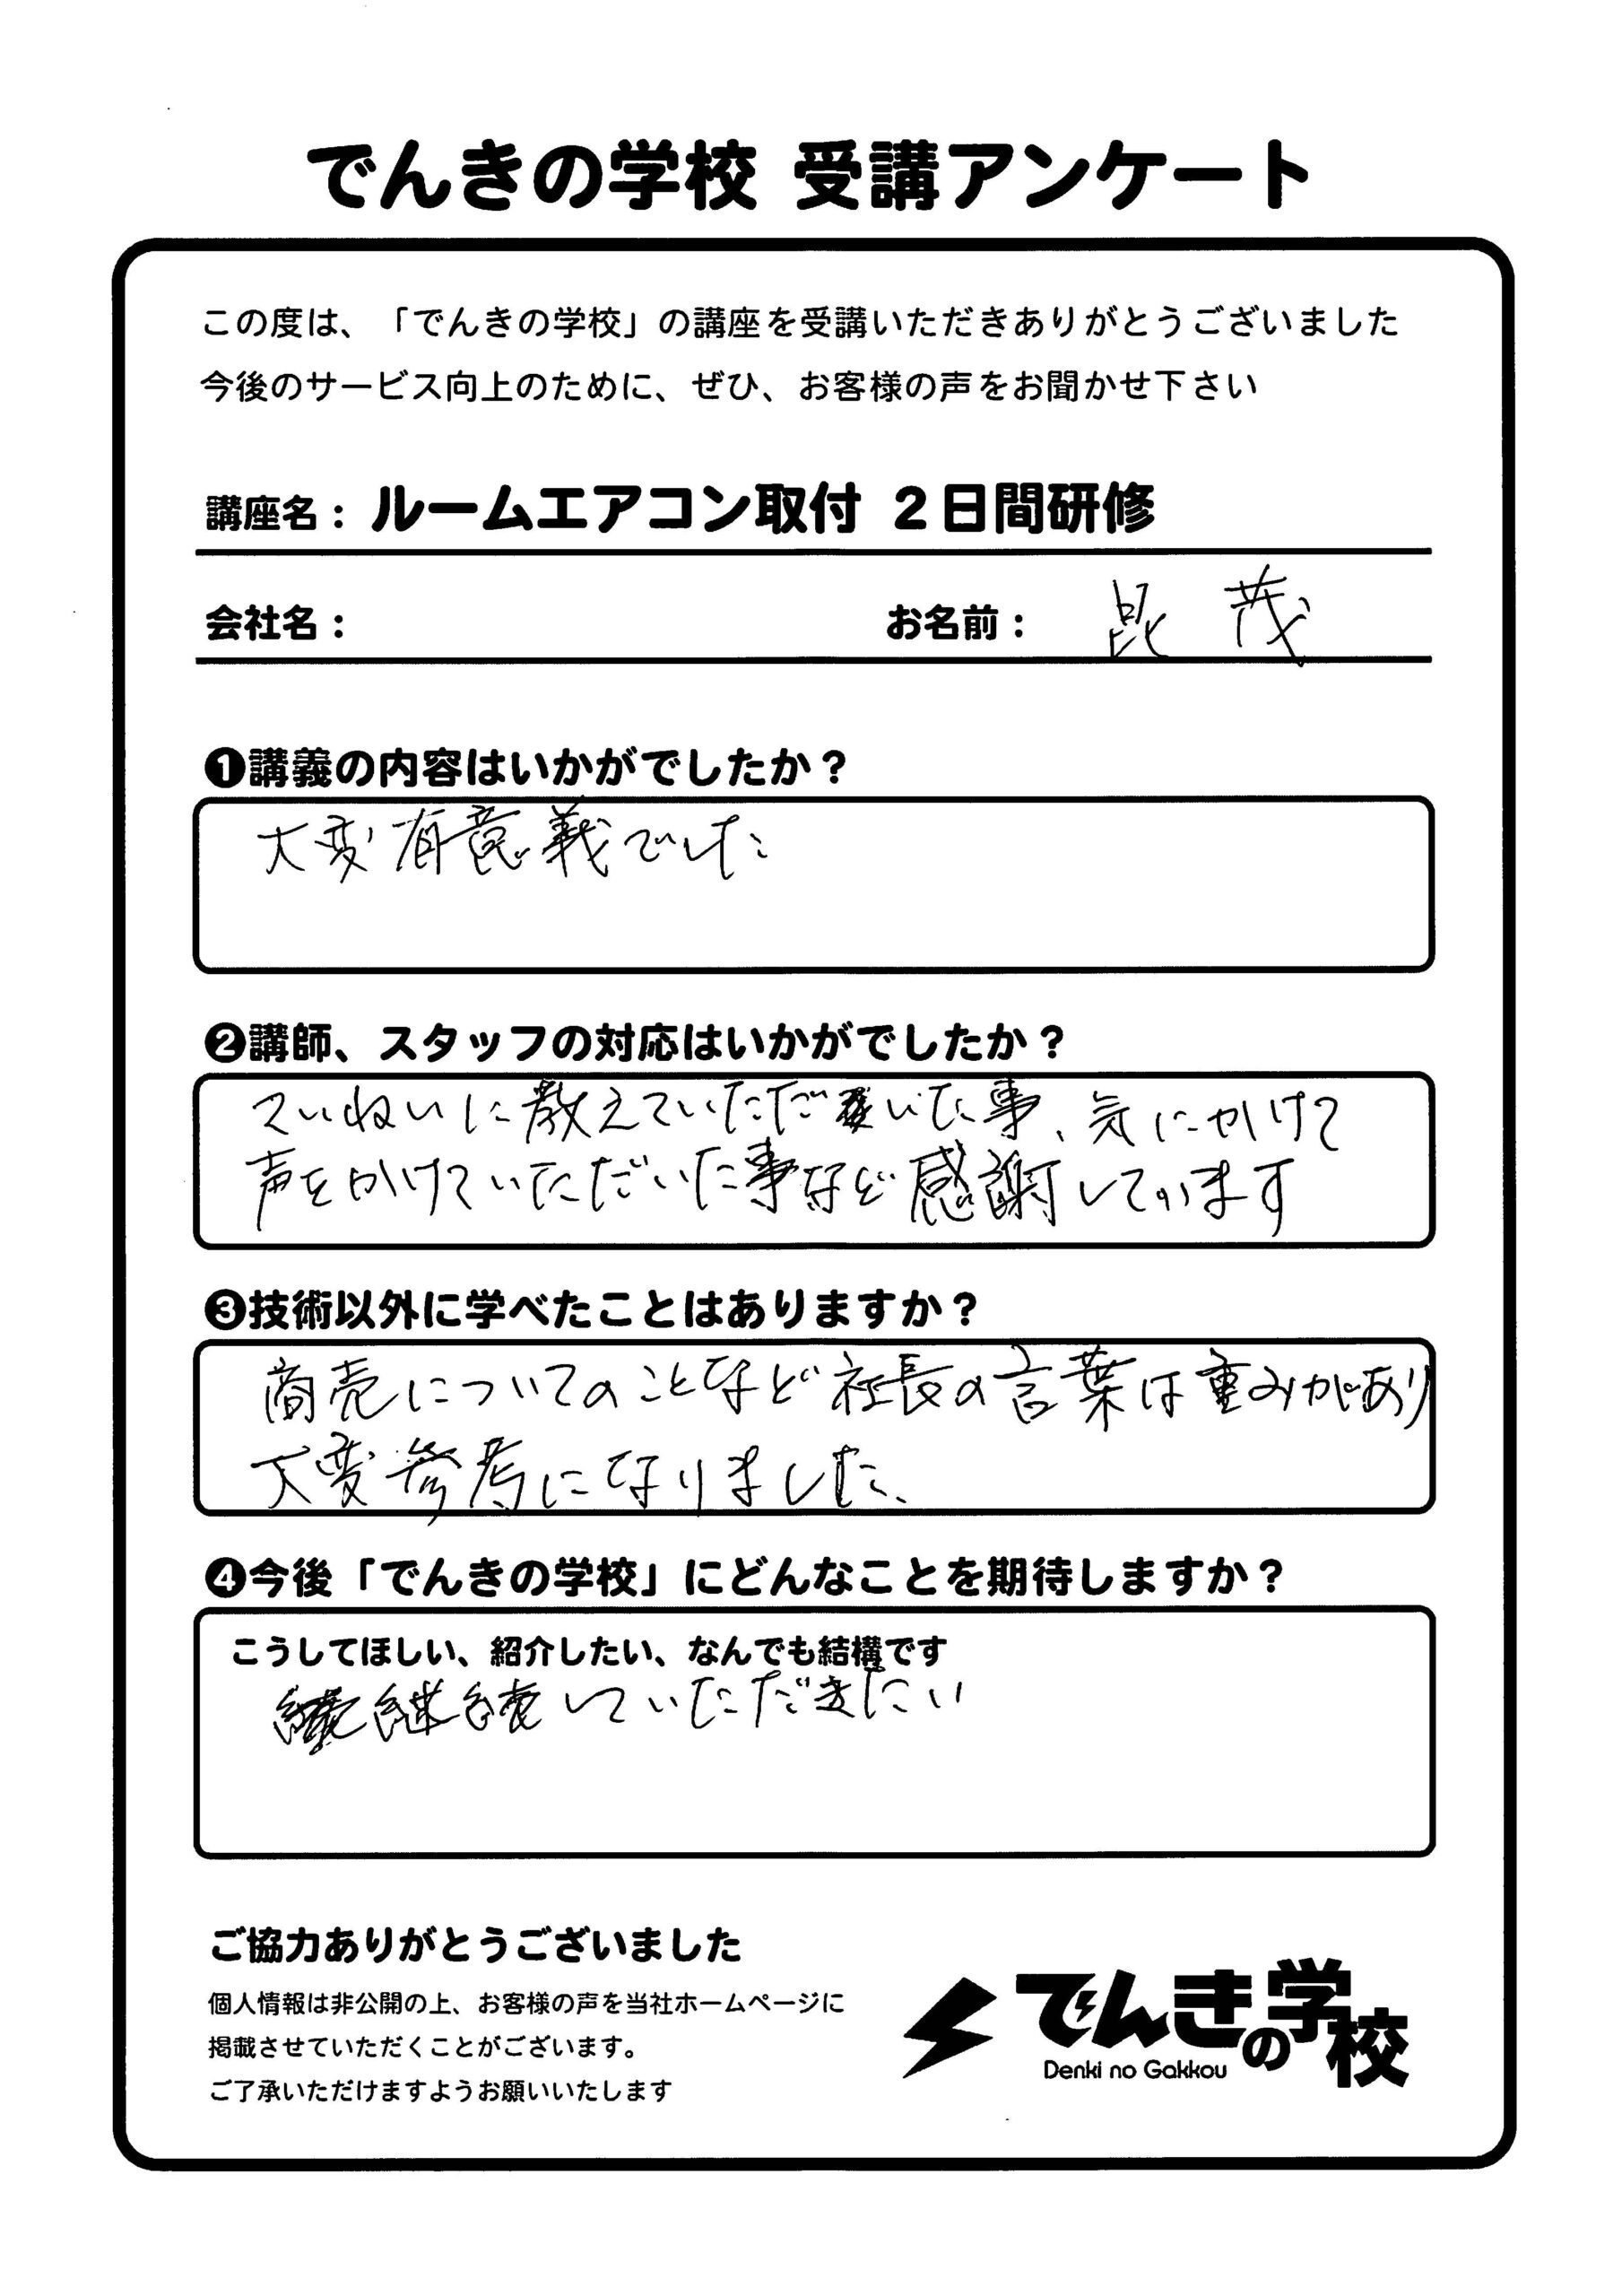 でんきの学校 受講アンケート
この度は、「でんきの学校」の講座を受講いただきありがとうございました
今後のサービス向上のために、ぜひ、お客様の声をお聞かせ下さい
講座名： ルームエアコン取付 ２日間研修
会社名： お名前： 昆 茂
❶講義の内容はいかがでしたか？
大変有意義でした
❷講師、スタッフの対応はいかがでしたか？
ていねいに教えていただいた事、気にかけて
声をかけていただいた事など感謝しています
❸技術以外に学べたことはありますか？
商売についてのことなど社長の言葉は重みがあり
大変参考になりました、
❹今後「でんきの学校」にどんなことを期待しますか？
こうしてほしい、紹介したい、なんでも結構です
継続していただきたい
ご協力ありがとうございました
個人情報は非公開の上、お客様の声を当社ホームページに
掲載させていただくことがございます。
ご了承いただけますようお願いいたします
でんきの学校
Denki no Gakkou